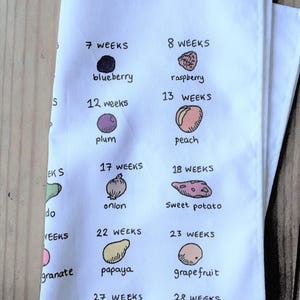 7 WEEKS 8 WEEKS
blueberry raspberry
12 weeks 13 WEEKS
plum peach
17 WEEKS 18 WEEKS
onion sweet potato
22 WEEKS 23 WEEKS
papaya grapefruit
27 WEEKS 28 WEEKS